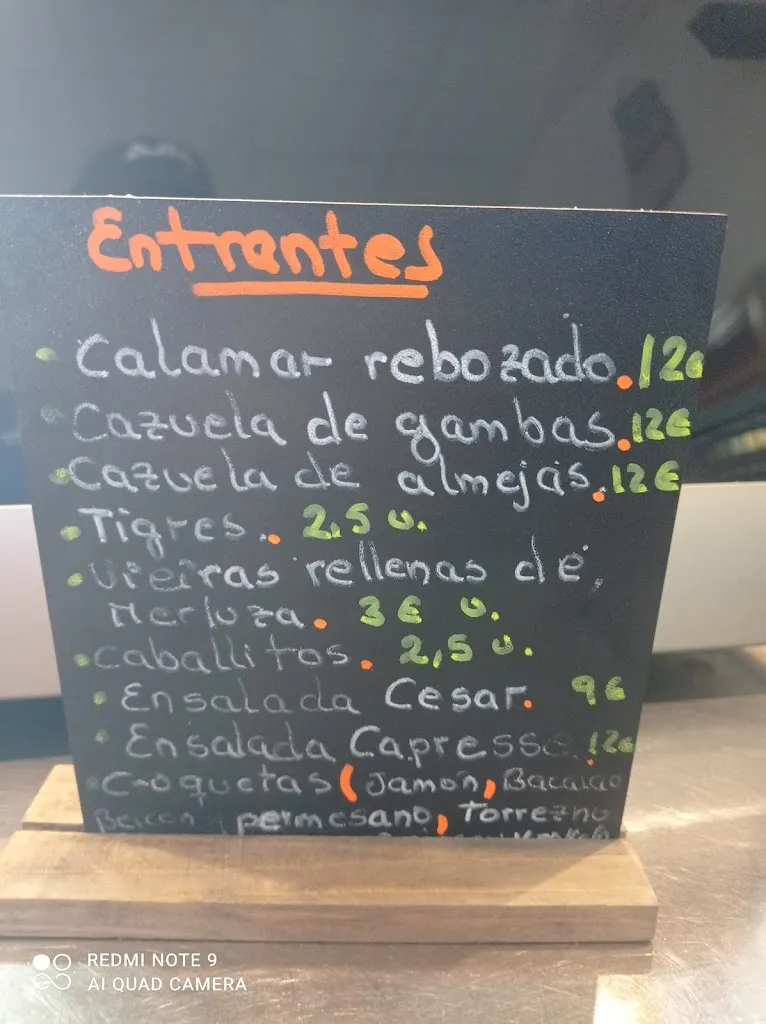 Entrantes
• Calamar rebozado. 12€
• Cazuela de gambas. 12€
• Cazuela de almejas. 12€
• Tigres. 2,5 u.
• Vieiras rellenas de
Merluza. 3€ u.
• Caballitos. 2,5 u.
• Ensalada Cesar. 9€
• Ensalada Capresse. 12€
• Croquetas (Jamón, Bacalao
Beicon, permesano, Torrezno
REDMI NOTE 9
AI QUAD CAMERA